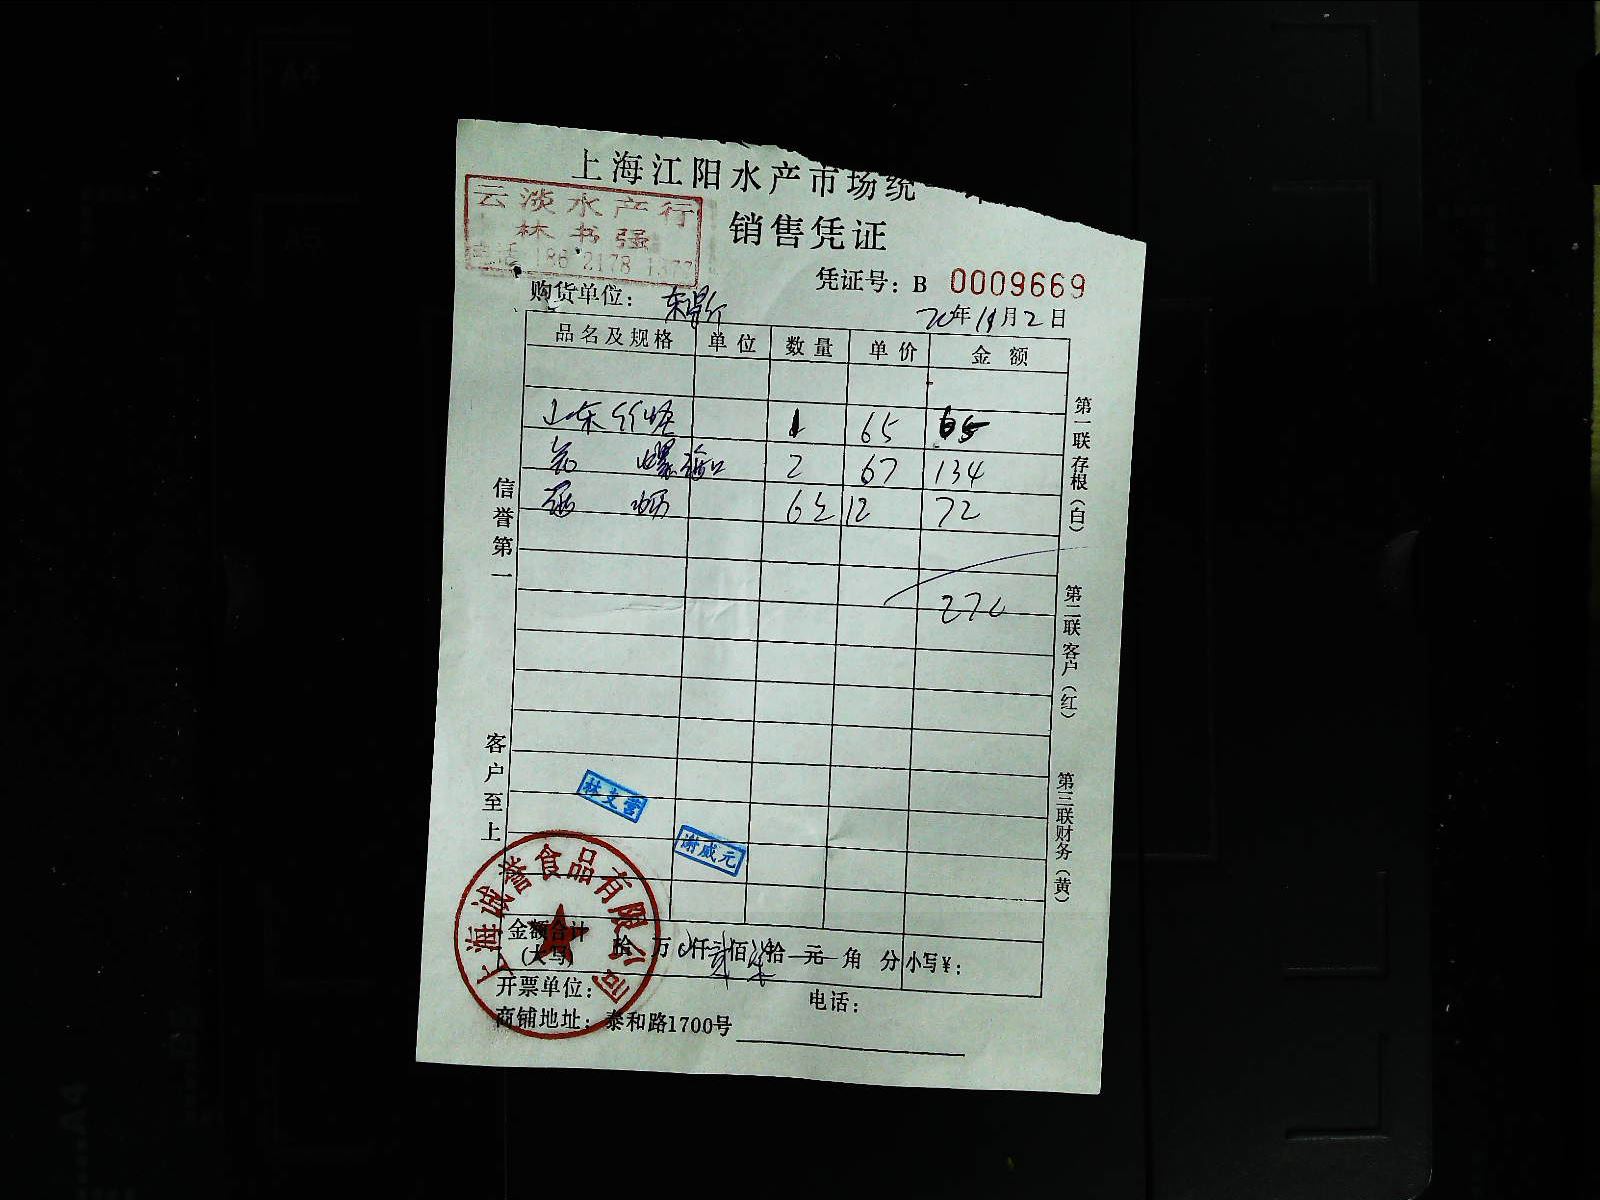 上海江阳水产市场统一
云淡水产行
林书强
电话 186 2178 1377
销售凭证
凭证号: B 0009669
购货单位:
20年11月2日
品名及规格 单位 数量 单价 金额
山东竹蛏 1 65 65
螺 2 67 134
蛎 6 12 72
信誉第一
客户至上
第一联存根(白)
第二联客户(红)
第三联财务(黄)
林文雪
谢威元
上海诚誉食品有限公司
金额合计
(大写) 拾 万 0仟贰佰柒拾 元 角 分 小写¥:
开票单位: 电话:
商铺地址: 泰和路1700号